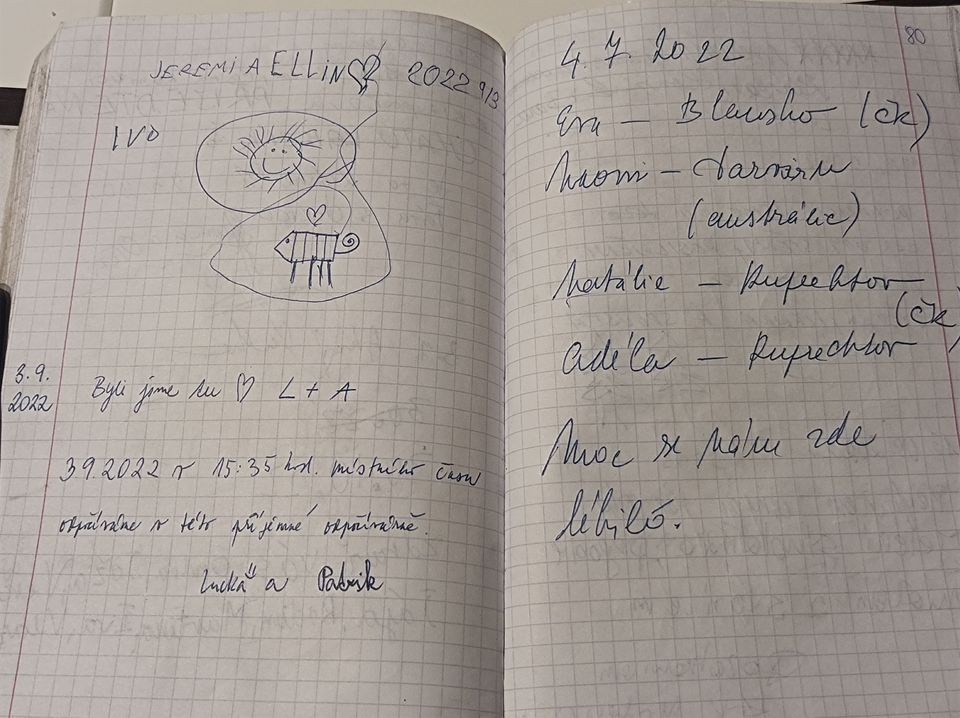 JEREMIA ELLIN 2022 9/3
IVO
3.9.
2022
Byli jsme tu ♡ L + A
3.9.2022 v 15:35 hod. místního času
odpočíváme v této příjemné odpočívárně.
Lucka a Patrik
80
4.7.2022
Eva – Blansko (čk)
Naomi –
(austrálie)
Natálie – Ruprechtov
(čk)
Adéla – Ruprechtov
Moc se nám zde
líbilo.